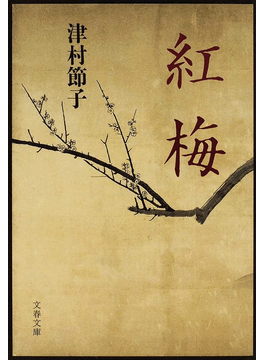 紅梅
津村節子
文春文庫